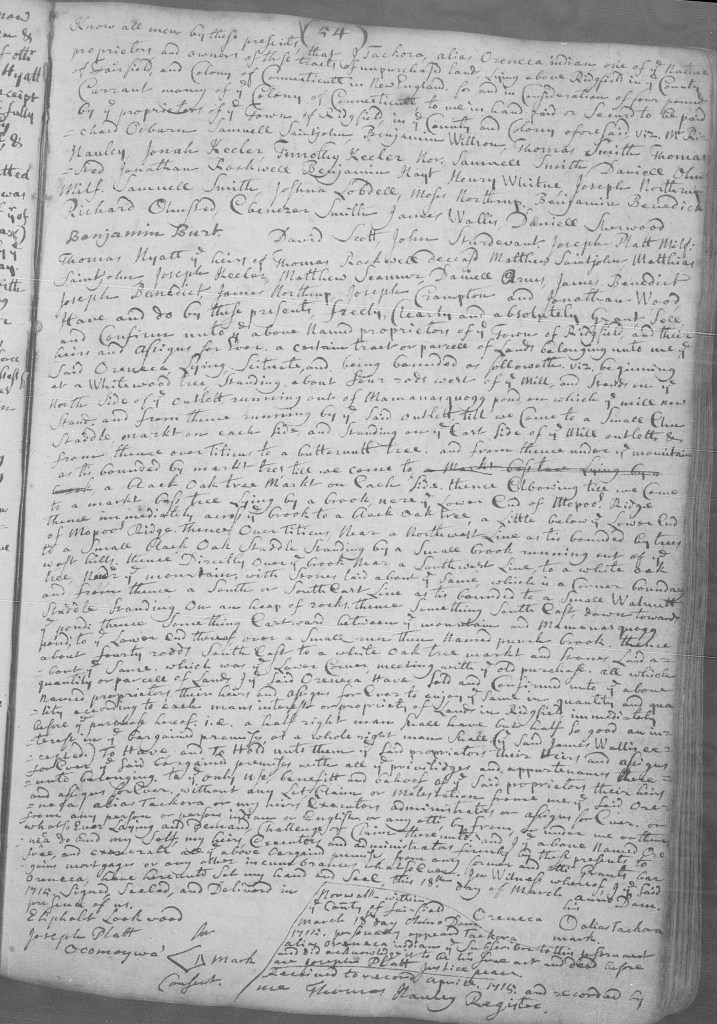 (54)
Know all men by these presents that I Tackora, alias Oreneca indian one of yᵉ Native
proprietors and owners of those tracts of unpurchasd land. Lying above Ridgfield in yᵉ County
of Fairfield, and Colony of Connecticutt in New England. for and in Consideration of four pound
Currant money of yᵉ Colony of Connecticutt to me in hand paid or Secured to be paid
by yᵉ proprietors of yᵉ Town of Ridgfield in yᵉ County and Colony aforesaid viz. Mr Ri-
-chard Osburn Samuell Saintjohn, Benjamin Willson, Thomas Smith Thomas
Hauley Jonah Keeler Timothy Keeler Nor. Samuell Smith Daniell Olm
-sted Jonathan Rockwell Benjamin Hayt Henry Whitne Joseph Northrup
Milf. Samuell Smith, Joshua Lobdell, Moses Northrup, Benjamin Benedict
Richard Olmsted, Ebenezer Smith James Wallis, Daniell Sherwood
Benjamin Burt. David Scott John Sturdevant, Joseph Platt Milf:
Thomas Hyatt yᵉ heirs of Thomas Rockwell deceasd Matthew Saintjohn Matthias
Saintjohn Joseph Keeler, Matthew Seamer Daniell James Benedict
Joseph Benedict, James Northrup, Joseph Crampton and Jonathan Wood
Have and do by these presents, freely, Clearly and absolutely Grant Sell
and Confirm unto yᵉ above Named proprietors of yᵉ Town of Ridgfield, and their
heirs and assigns for Ever. a certain tract or parcell of Lands belonging unto me yᵉ
Said Oreneca Lying, Scituate, and being bounded as followeth viz. beginning
at a Whitewood tree Standing about four rods west of yᵉ Mill, and Stands on yᵉ
North Side of yᵉ outlett running out of Mamanasquogg pond on which yᵉ mill now
Stand, and from thence running by yᵉ Said outlett till we come to a Small Elm
Staddle, markt on each Side and Standing on yᵉ East Side of yᵉ Mill outlett, &
from thence overtitious to a butternutt tree. and from thence under yᵉ mountain
as tis, bounded by markt trees till we come to a Markt bass tree Lying by a
brook a black Oak tree Markt on Each Side, thence Elboring till we Come
to a markt bass tree Lying by a brook nere yᵉ Lower End of Mopoos Ridge
thence immediately across yᵉ brook to a black Oak tree, a Little below yᵉ Lower End
of Mopoos Ridge. thence Overtitious, Near a Northwest Line as tis bounded by trees
to a Small black Oak Staddle Standing by a Small brook running out of yᵉ
west hills; thence Directly Over yᵉ brook Near a Southwest Line, to a white oak
tree, Nere yᵉ mountain, with Stones laid about yᵉ Same, which is a Corner boundary
and from thence a South or South East Line as tis bounded to a Small Walnutt
Staddle Standing On an heap of rocks. thence Something South East, down towards
yᵉ pond; thence Something Eastward between yᵉ mountain and Mamanasquogg
pond, to yᵉ Lower End thereof over a Small run then Named punch brook. thence
about fourty rodds South East to a white Oak tree markt and Stones Laid a-
-bout yᵉ Same. which was yᵉ Lower Corner meeting with yᵉ old purchase. all which
quantity or parcell of Lands I yᵉ Said Oreneca Have Sold and Confirmed unto yᵉ above
Named proprietors their heirs and assigns for Ever to enjoy yᵉ Same in quantity and qua
lity, according to each mans interest or propriety of Lands in Ridgfield, immediately
before yᵉ purchase hereof, i.e. a half right man Shall have but half So good an in-
-terest in yᵉ bargained premises as a whole right man Shall (yᵉ Said James Wallis ex-
-cepted) to Have, and to Hold unto them yᵉ Said proprietors their Heirs and assigns
for Ever yᵉ Said bargained premises with all yᵉ priviledges and appurtenances there
unto belonging, to yᵉ only Use benefitt and behoof of yᵉ Said proprietors their heirs
and assigns for Ever, without any Let, Claim or Molestation from me yᵉ Said Ore-
-neca alias Tackora or my heirs Executors administrators or assigns for Ever, or
from any person or persons indian or English, or any other by from, or under me or them
whatso Ever Laying and Demand, Challenge or Claim thereunto, and I yᵉ above Named Ore
neca do bind my Self, my heirs, Executors, and administrators firmly by these presents to
free, and exonerate all yᵉ above bargained premises from any former and other Grants, bar
gains mortgages or any other incumbrances whatso Ever. In Witness whereof, I yᵉ Said
Oreneca, have hereunto Set my hand and Seal, this 18th day of March anno Dom:
1715. Signed, Sealed, and Delivered in
presence of us.
Eliphalt Lockwood
Joseph Platt
Ocomoywa
mark
Consent.
Oreneca his O alias Tackora
mark.
Norwalk within
yᵉ County of Fairfield
March yᵉ 18 day Anno Dom.
1715. personally appeard Tackora
alias Oreneca indian yᵉ Subscriber to this instrument
and did acknowledge it to be his free act and deed before
me Joseph Platt Justice peace.
Received to record April 1715. and recorded by
me Thomas Hauley Register.